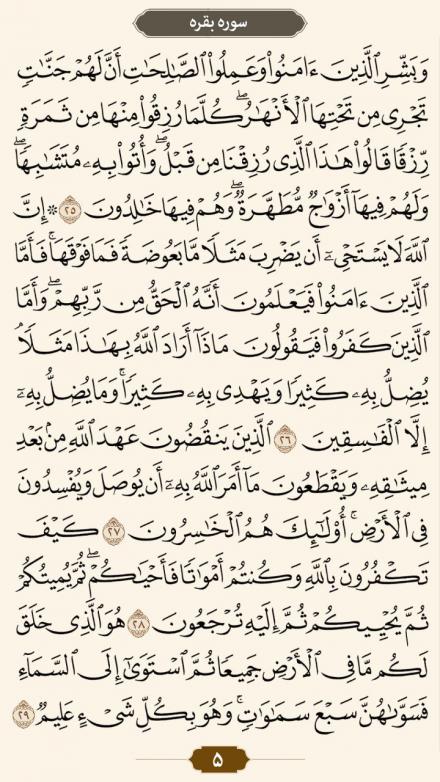 سوره بقره
وَبَشِّرِ ٱلَّذِينَ ءَامَنُواْ وَعَمِلُواْ ٱلصَّٰلِحَٰتِ أَنَّ لَهُمۡ جَنَّٰتٖ
تَجۡرِي مِن تَحۡتِهَا ٱلۡأَنۡهَٰرُۖ كُلَّمَا رُزِقُواْ مِنۡهَا مِن ثَمَرَةٖ
رِّزۡقٗا قَالُواْ هَٰذَا ٱلَّذِي رُزِقۡنَا مِن قَبۡلُۖ وَأُتُواْ بِهِۦ مُتَشَٰبِهٗاۖ
وَلَهُمۡ فِيهَآ أَزۡوَٰجٞ مُّطَهَّرَةٞۖ وَهُمۡ فِيهَا خَٰلِدُونَ ٢٥ ۞ إِنَّ
ٱللَّهَ لَا يَسۡتَحۡيِۦٓ أَن يَضۡرِبَ مَثَلٗا مَّا بَعُوضَةٗ فَمَا فَوۡقَهَاۚ فَأَمَّا
ٱلَّذِينَ ءَامَنُواْ فَيَعۡلَمُونَ أَنَّهُ ٱلۡحَقُّ مِن رَّبِّهِمۡۖ وَأَمَّا
ٱلَّذِينَ كَفَرُواْ فَيَقُولُونَ مَاذَآ أَرَادَ ٱللَّهُ بِهَٰذَا مَثَلٗاۘ
يُضِلُّ بِهِۦ كَثِيرٗا وَيَهۡدِي بِهِۦ كَثِيرٗاۚ وَمَا يُضِلُّ بِهِۦٓ
إِلَّا ٱلۡفَٰسِقِينَ ٢٦ ٱلَّذِينَ يَنقُضُونَ عَهۡدَ ٱللَّهِ مِنۢ بَعۡدِ
مِيثَٰقِهِۦ وَيَقۡطَعُونَ مَآ أَمَرَ ٱللَّهُ بِهِۦٓ أَن يُوصَلَ وَيُفۡسِدُونَ
فِي ٱلۡأَرۡضِۚ أُوْلَٰٓئِكَ هُمُ ٱلۡخَٰسِرُونَ ٢٧ كَيۡفَ
تَكۡفُرُونَ بِٱللَّهِ وَكُنتُمۡ أَمۡوَٰتٗا فَأَحۡيَٰكُمۡۖ ثُمَّ يُمِيتُكُمۡ
ثُمَّ يُحۡيِيكُمۡ ثُمَّ إِلَيۡهِ تُرۡجَعُونَ ٢٨ هُوَ ٱلَّذِي خَلَقَ
لَكُم مَّا فِي ٱلۡأَرۡضِ جَمِيعٗا ثُمَّ ٱسۡتَوَىٰٓ إِلَى ٱلسَّمَآءِ
فَسَوَّىٰهُنَّ سَبۡعَ سَمَٰوَٰتٖۚ وَهُوَ بِكُلِّ شَيۡءٍ عَلِيمٞ ٢٩
۵